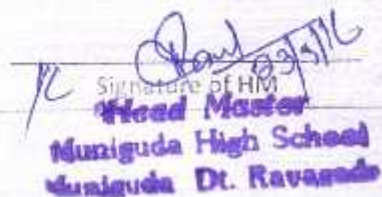 23/5/16
Signature of HM
Head Master
Muniguda High School
Muniguda Dt. Rayagada